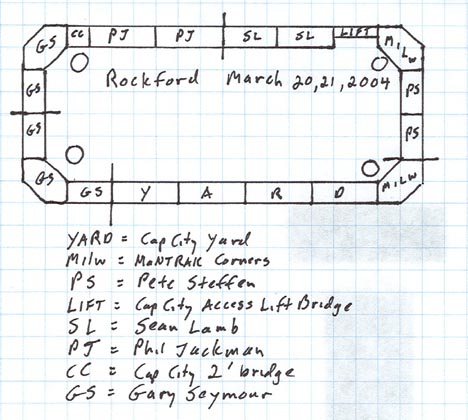 GS CC PJ PJ SL SL LIFT MILW
GS Rockford March 20,21,2004 PS
GS PS
GS MILW
GS Y A R D
YARD = Cap City Yard
MILW = MANTRAK Corners
PS = Pete Steffen
LIFT = Cap City Access Lift Bridge
SL = Sean Lamb
PJ = Phil Jackman
CC = Cap City 2' bridge
GS = Gary Seymour